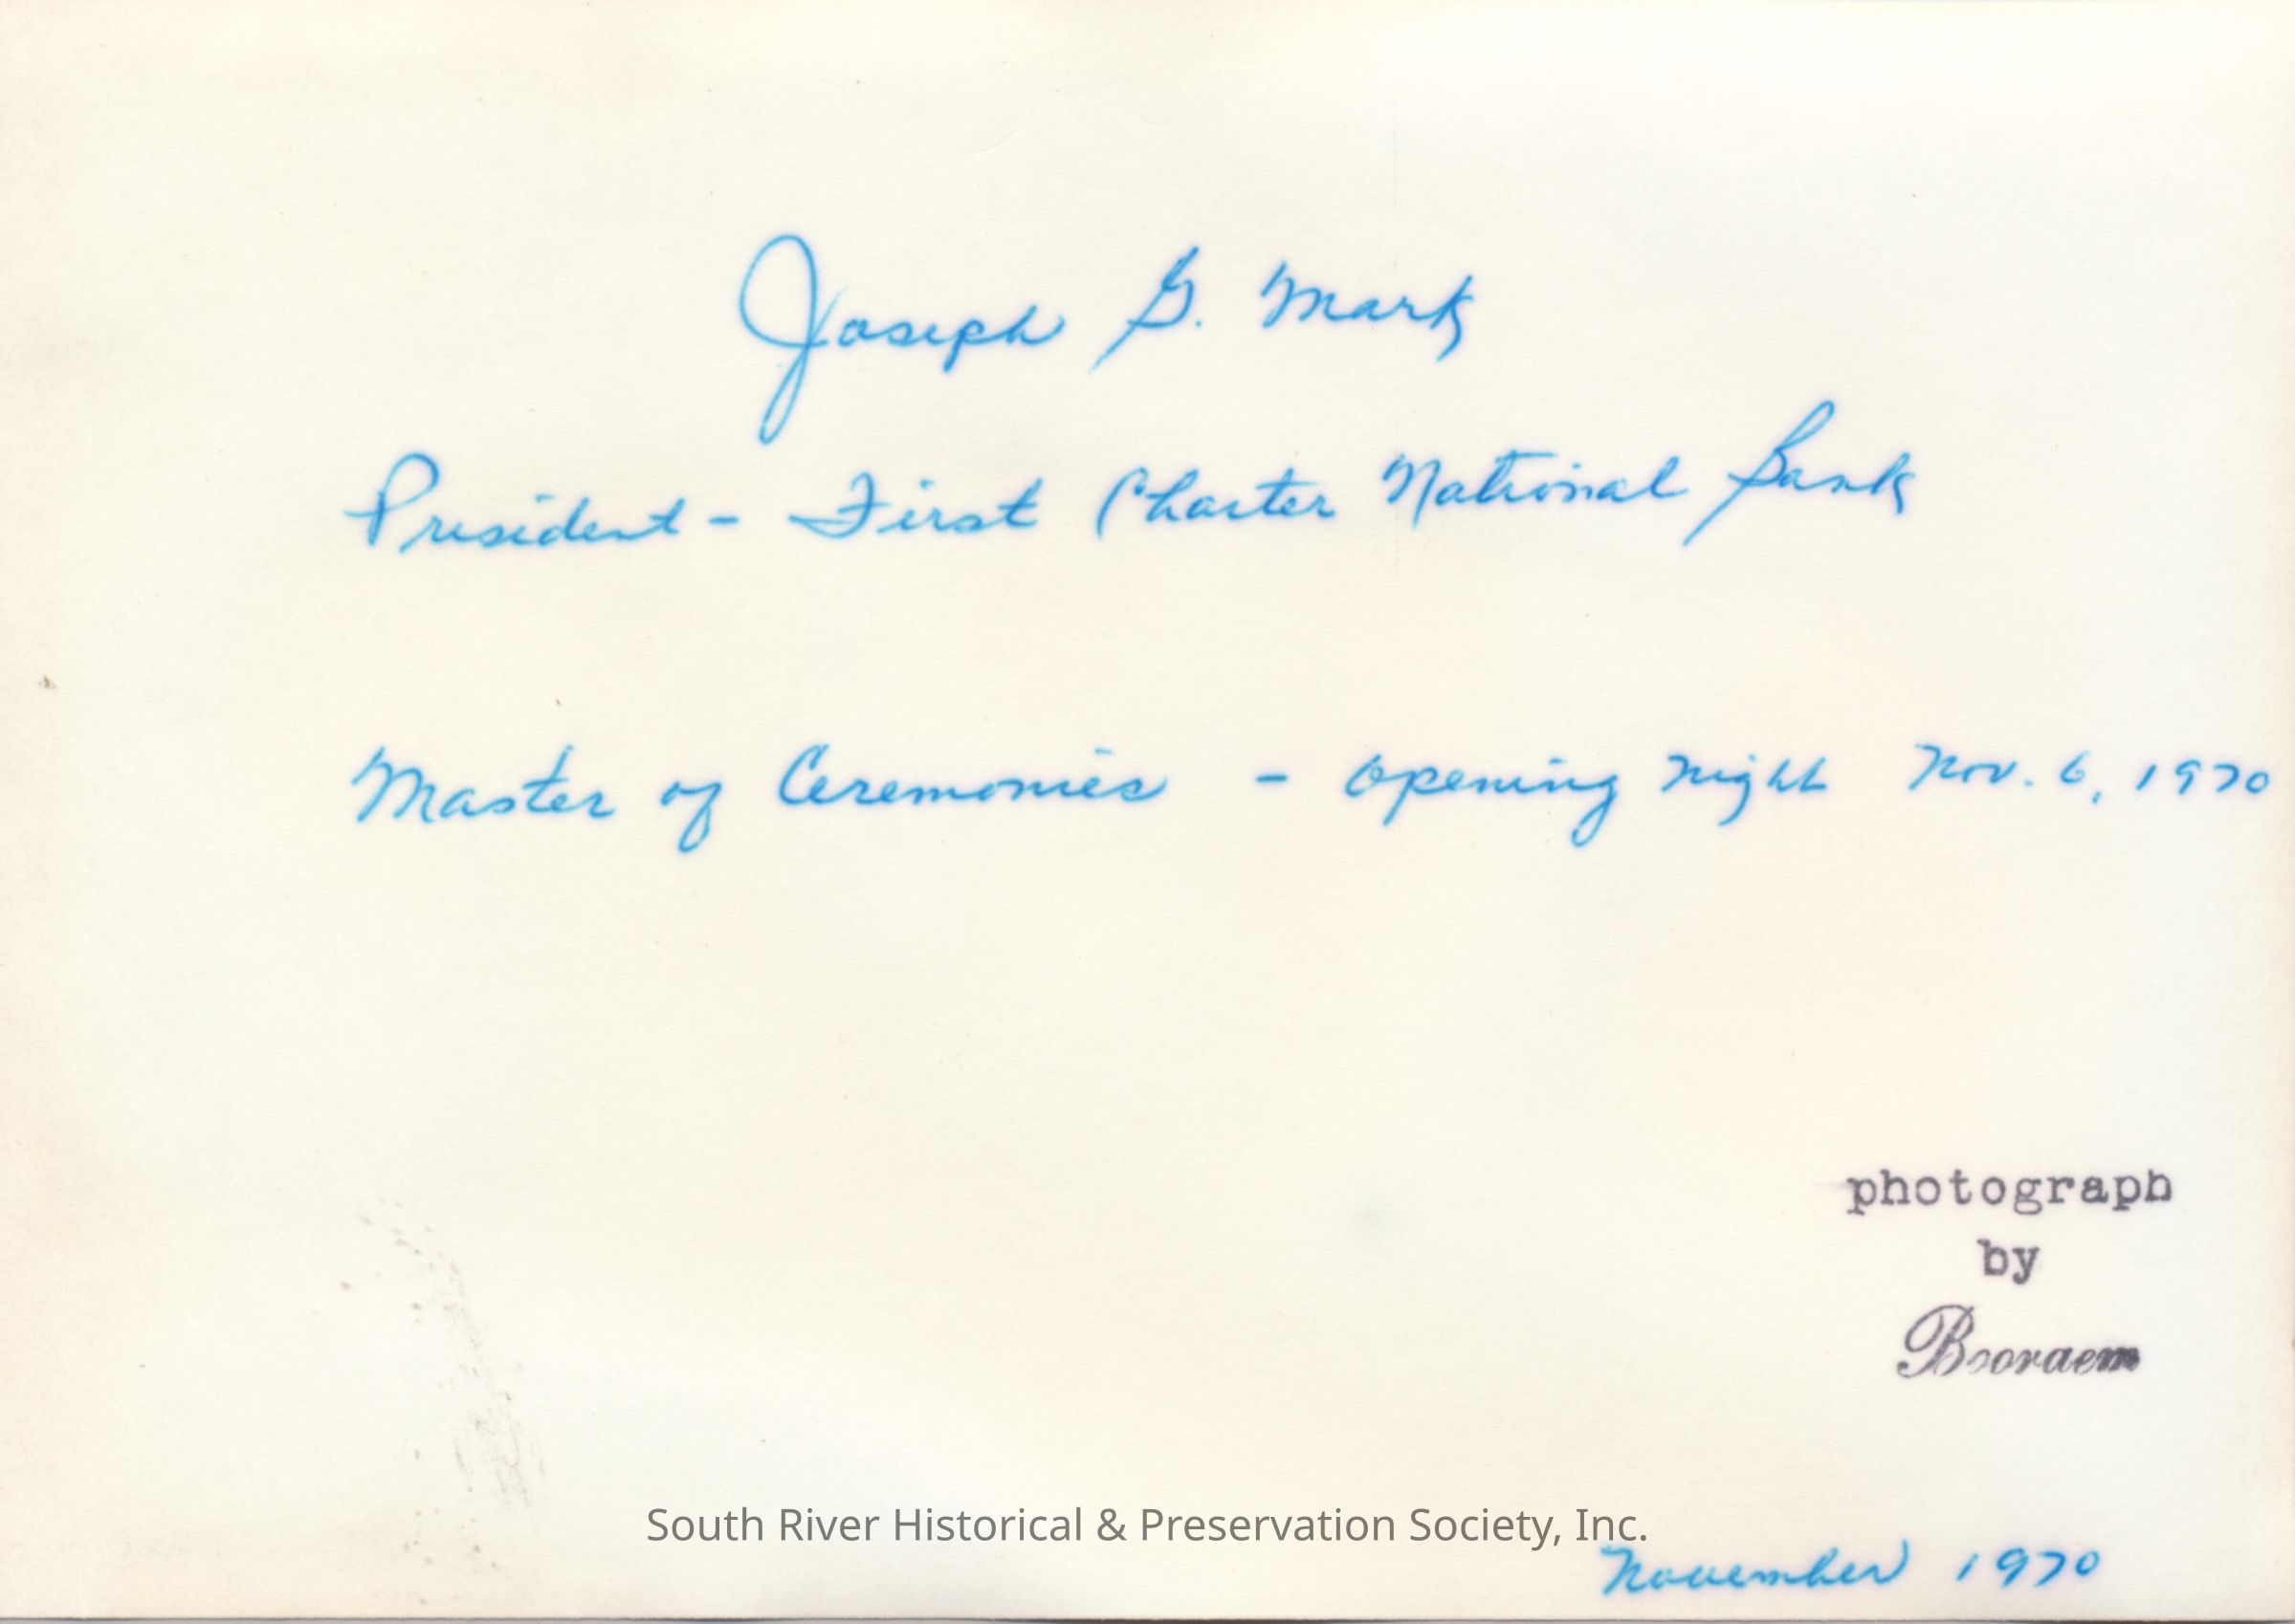 Joseph G. Mark
President - First Charter National Bank
Master of Ceremonies - Opening Night Nov. 6, 1970
photograph
by
Booraem
South River Historical & Preservation Society, Inc.
November 1970